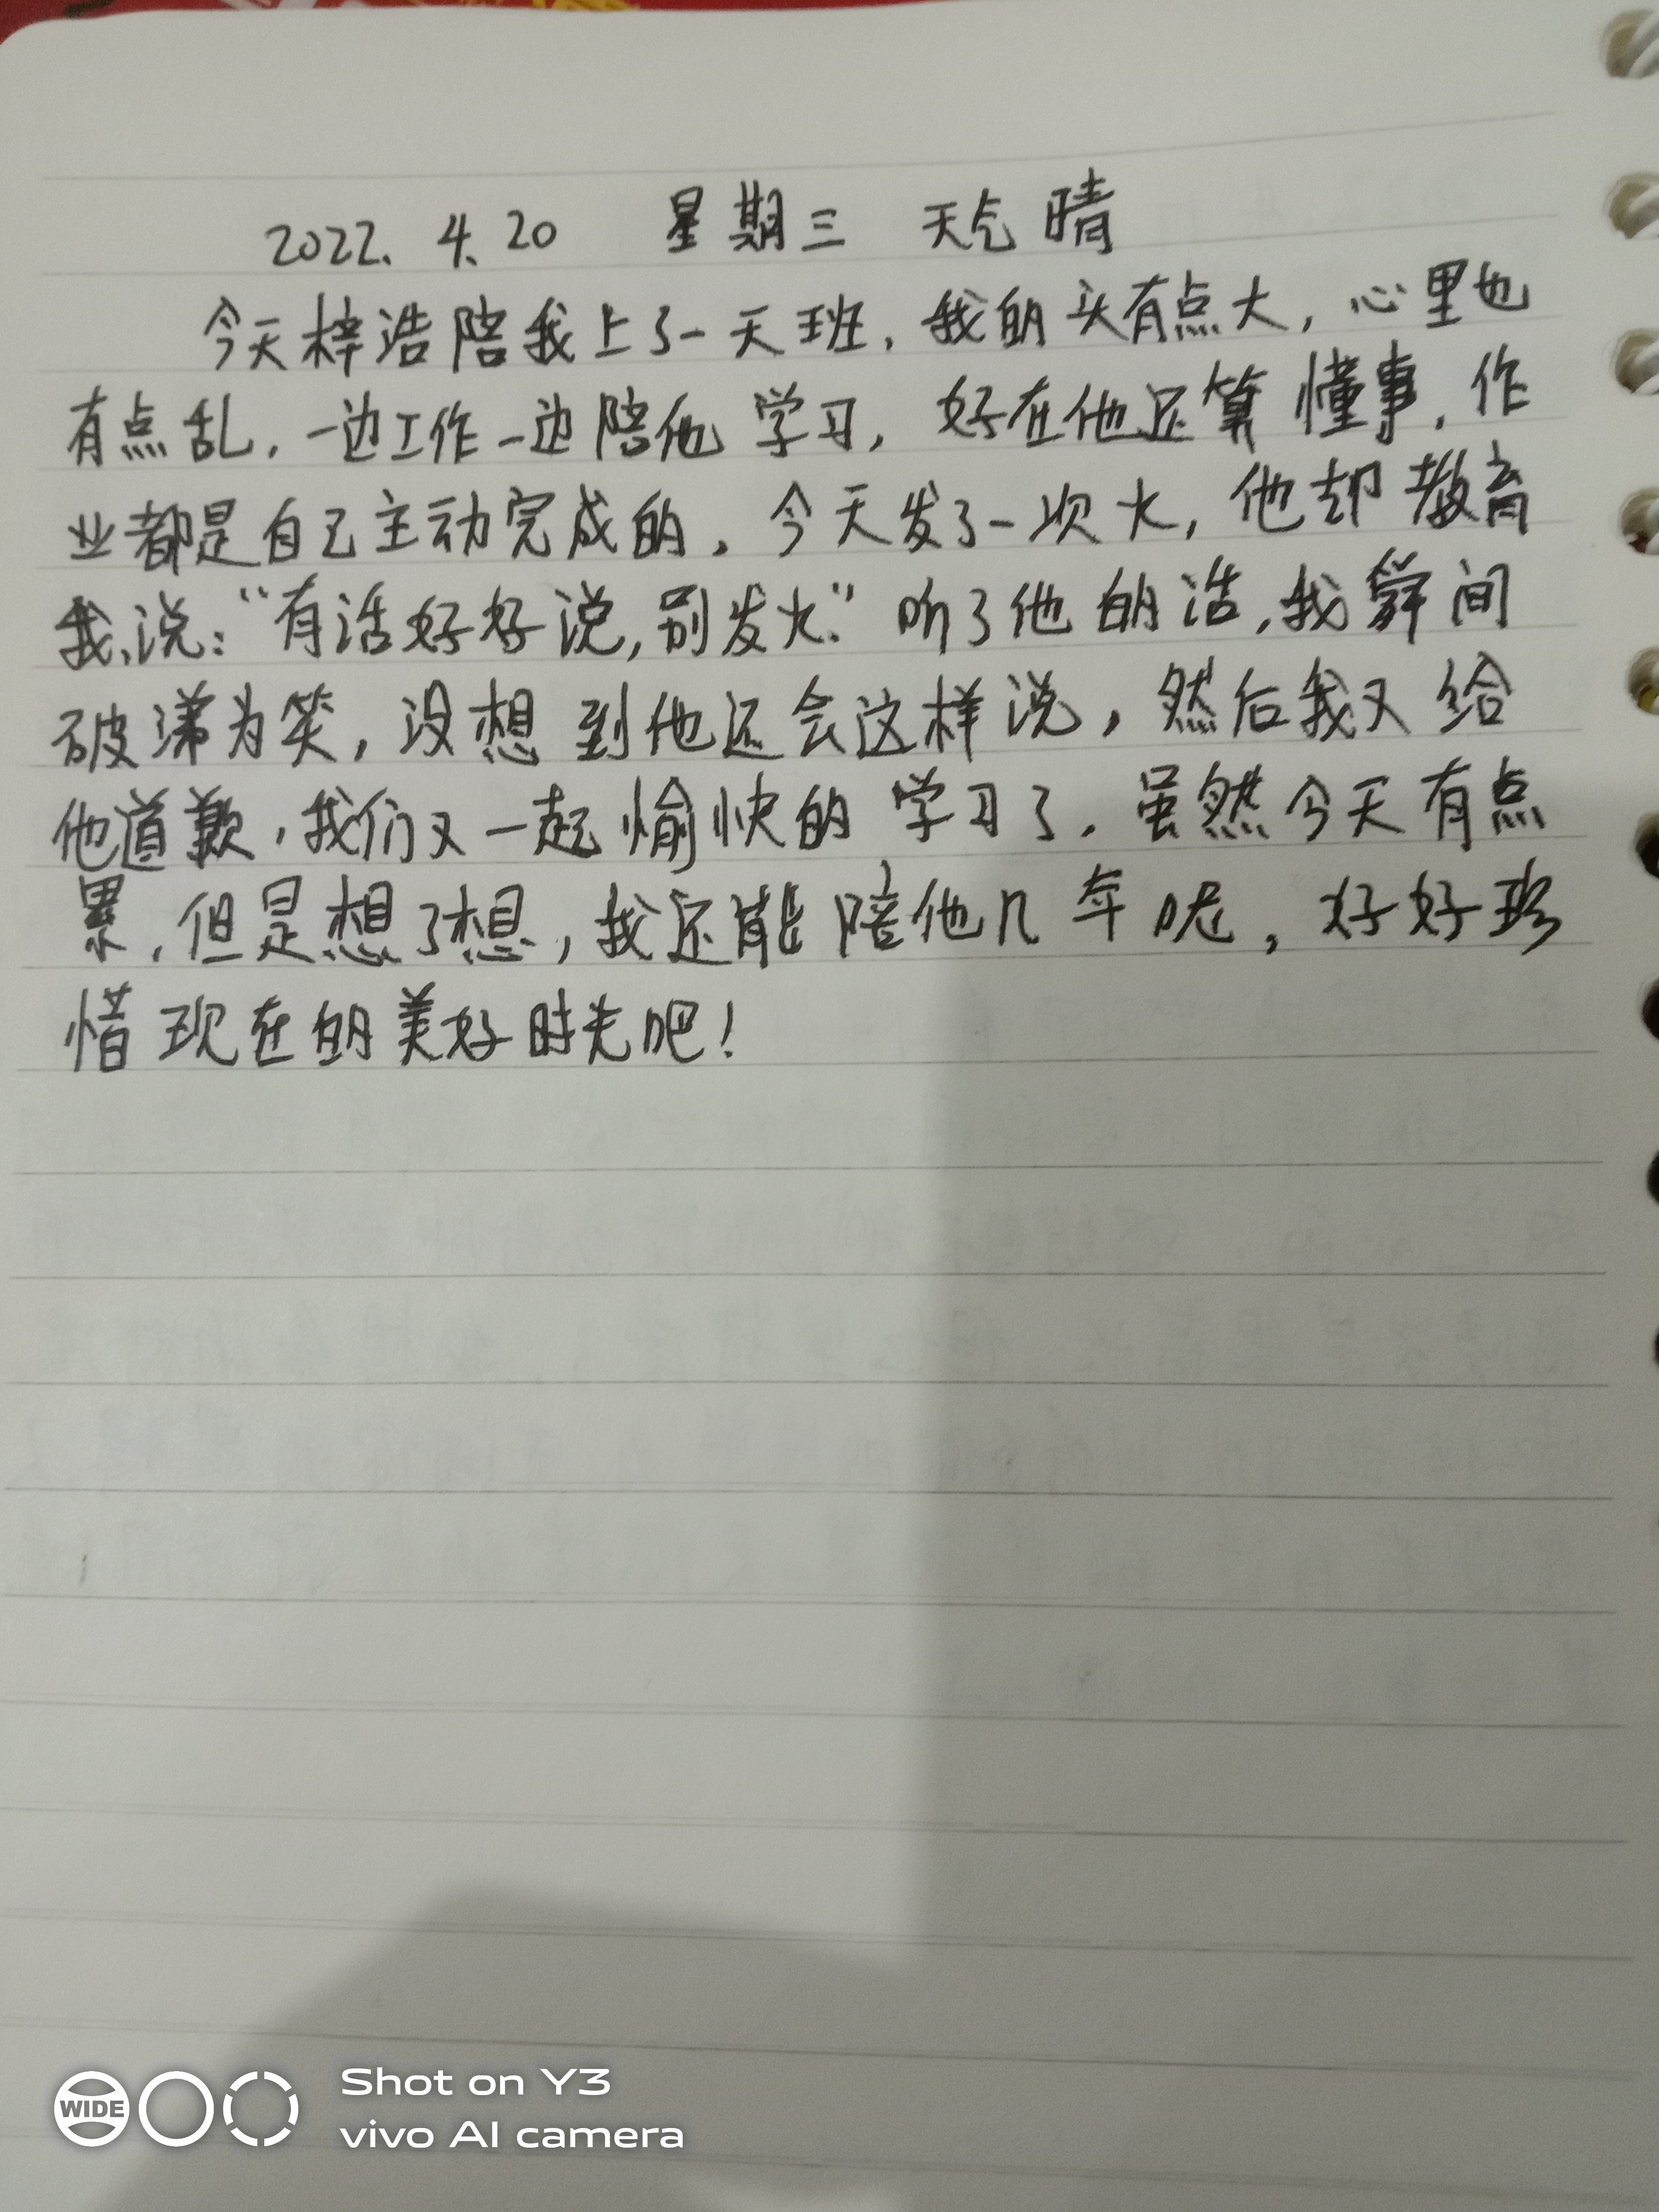 2022.4.20 星期三 天气晴
今天梓浩陪我上了一天班,我的头有点大,心里也
有点乱,一边工作一边陪他学习,好在他还算懂事,作
业都是自己主动完成的。今天发了一次火,他却教育
我,说:“有话好好说,别发火.”听了他的话,我瞬间
破涕为笑,没想到他还会这样说,然后我又给
他道歉,我们又一起愉快的学习了。虽然今天有点
累,但是想了想,我还能陪他几年呢,好好珍
惜现在的美好时光吧!
WIDE
Shot on Y3
vivo AI camera